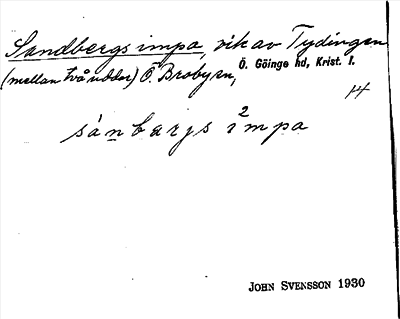 Sandbergs impa, vik av Tydingen
(mellan två uddar) Ö. Broby sn, Ö. Göinge hd, Krist. l.
14
sánbarjs ²impa
JOHN SVENSSON 1930